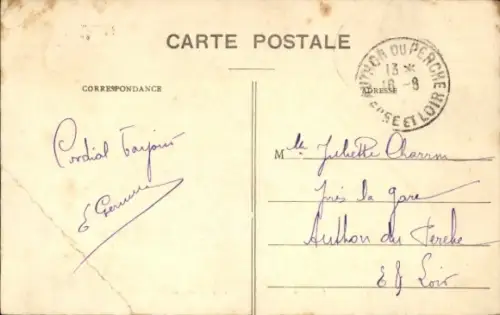 CARTE POSTALE
CORRESPONDANCE
ADRESSE
AUTHON DU PERCHE
13 *
18 -9
EURE ET LOIR
Cordial bonjour
E
Mlle Juliette
près la gare
Authon du Perche
E & Loir